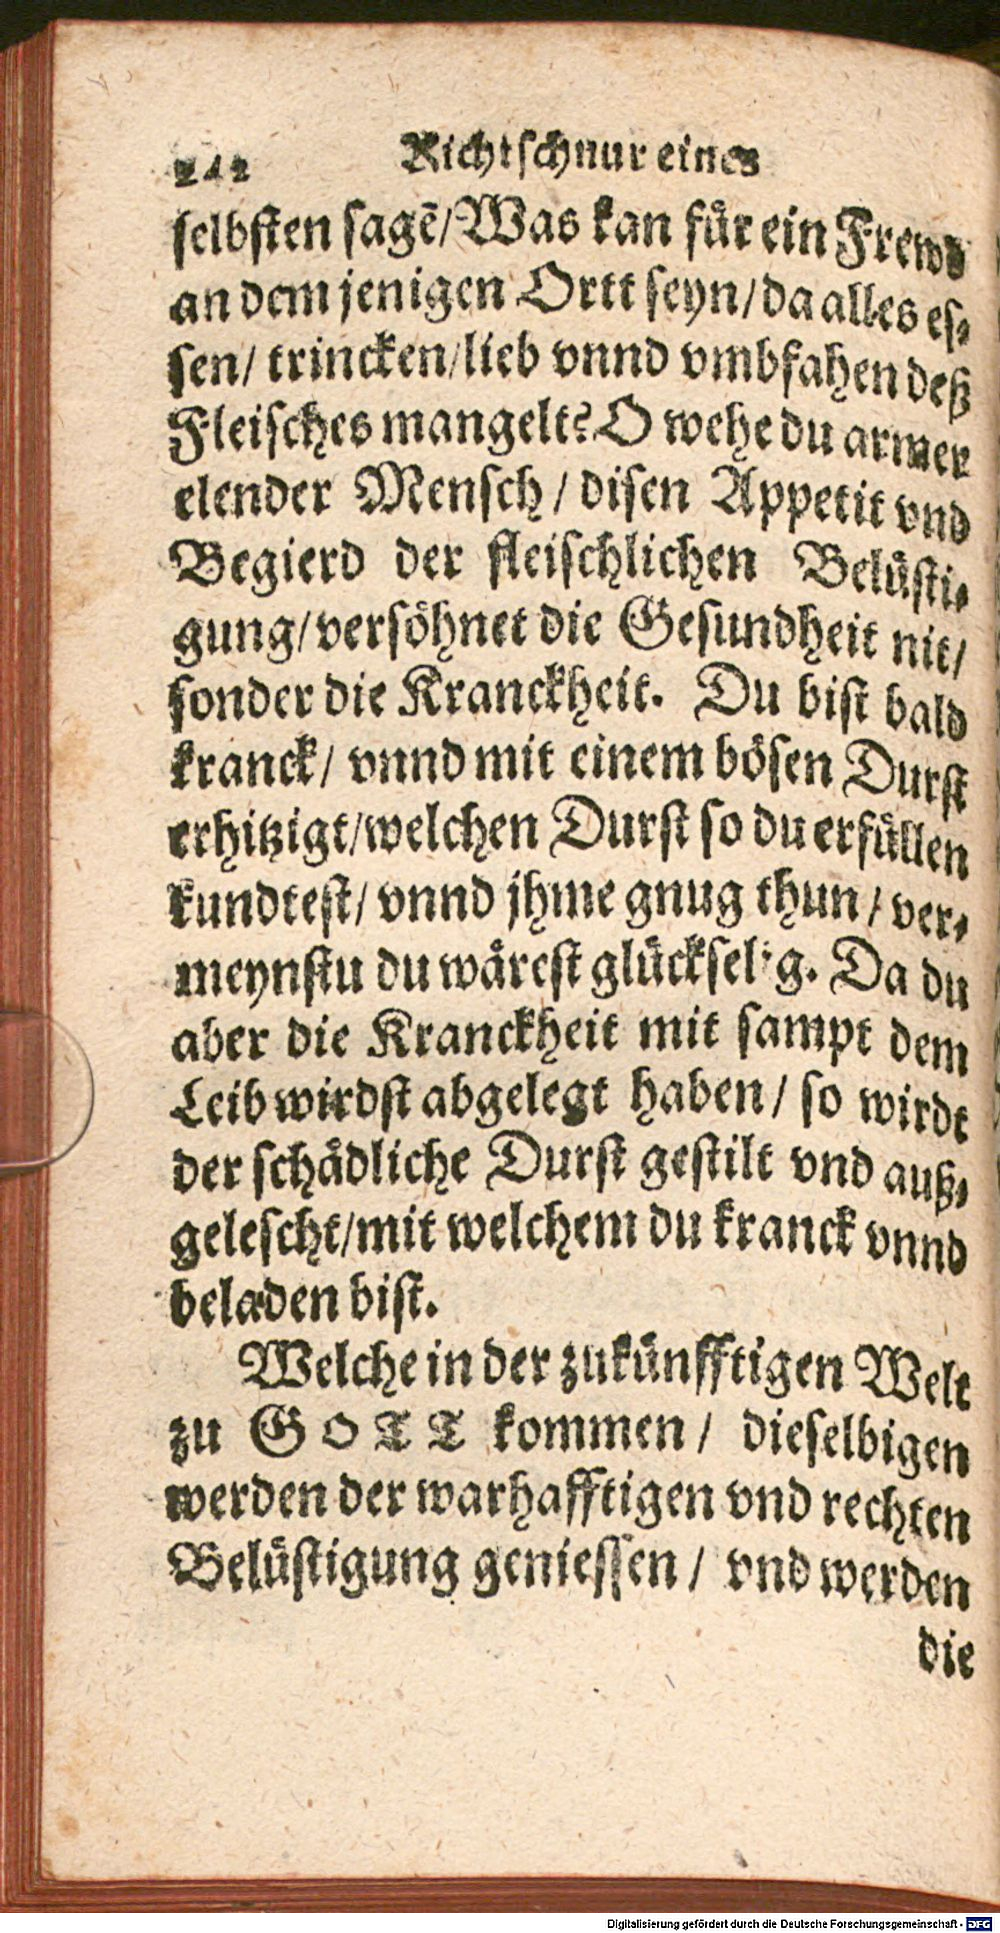 242 Richtschnur eines
selbsten sagẽ/Was kan fuͤr ein Frewd
an dem jenigen Ortt seyn/da alles es-
sen/ trincken/lieb vnnd vmbfahen deß
Fleisches mangelt? O wehe du armer
elender Mensch / disen Appetit vnd
Begierd der fleischlichen Beluͤsti-
gung/versoͤhnet die Gesundheit nit/
sonder die Kranckheit. Du bist bald
kranck/ vnnd mit einem boͤsen Durst
erhitzigt/welchen Durst so du erfuͤllen
kundtest/ vnnd jhme gnug thun / ver-
meynstu du waͤrest gluͤckselig. Da du
aber die Kranckheit mit sampt dem
Leib wirdst abgelegt haben / so wirdt
der schaͤdliche Durst gestilt vnd auß-
gelescht/mit welchem du kranck vnnd
beladen bist.
Welche in der zukuͤnfftigen Welt
zu GOTT kommen / dieselbigen
werden der warhafftigen vnd rechten
Beluͤstigung geniessen / vnd werden
die
Digitalisierung gefördert durch die Deutsche Forschungsgemeinschaft - DFG